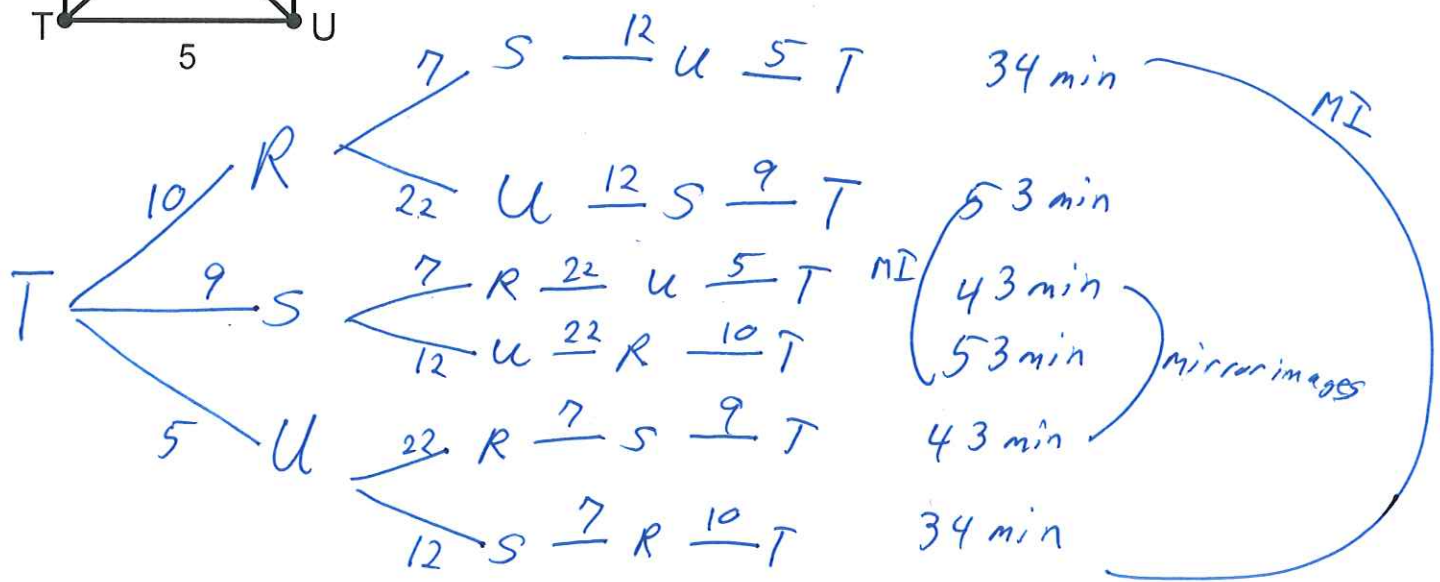 T U
5
7 S 12 U 5 T 34 min
MI
10 R
22 U 12 S 9 T 53 min
T 9 S 7 R 22 U 5 T MI 43 min
12 U 22 R 10 T 53 min mirror images
5 U 22 R 7 S 9 T 43 min
12 S 7 R 10 T 34 min